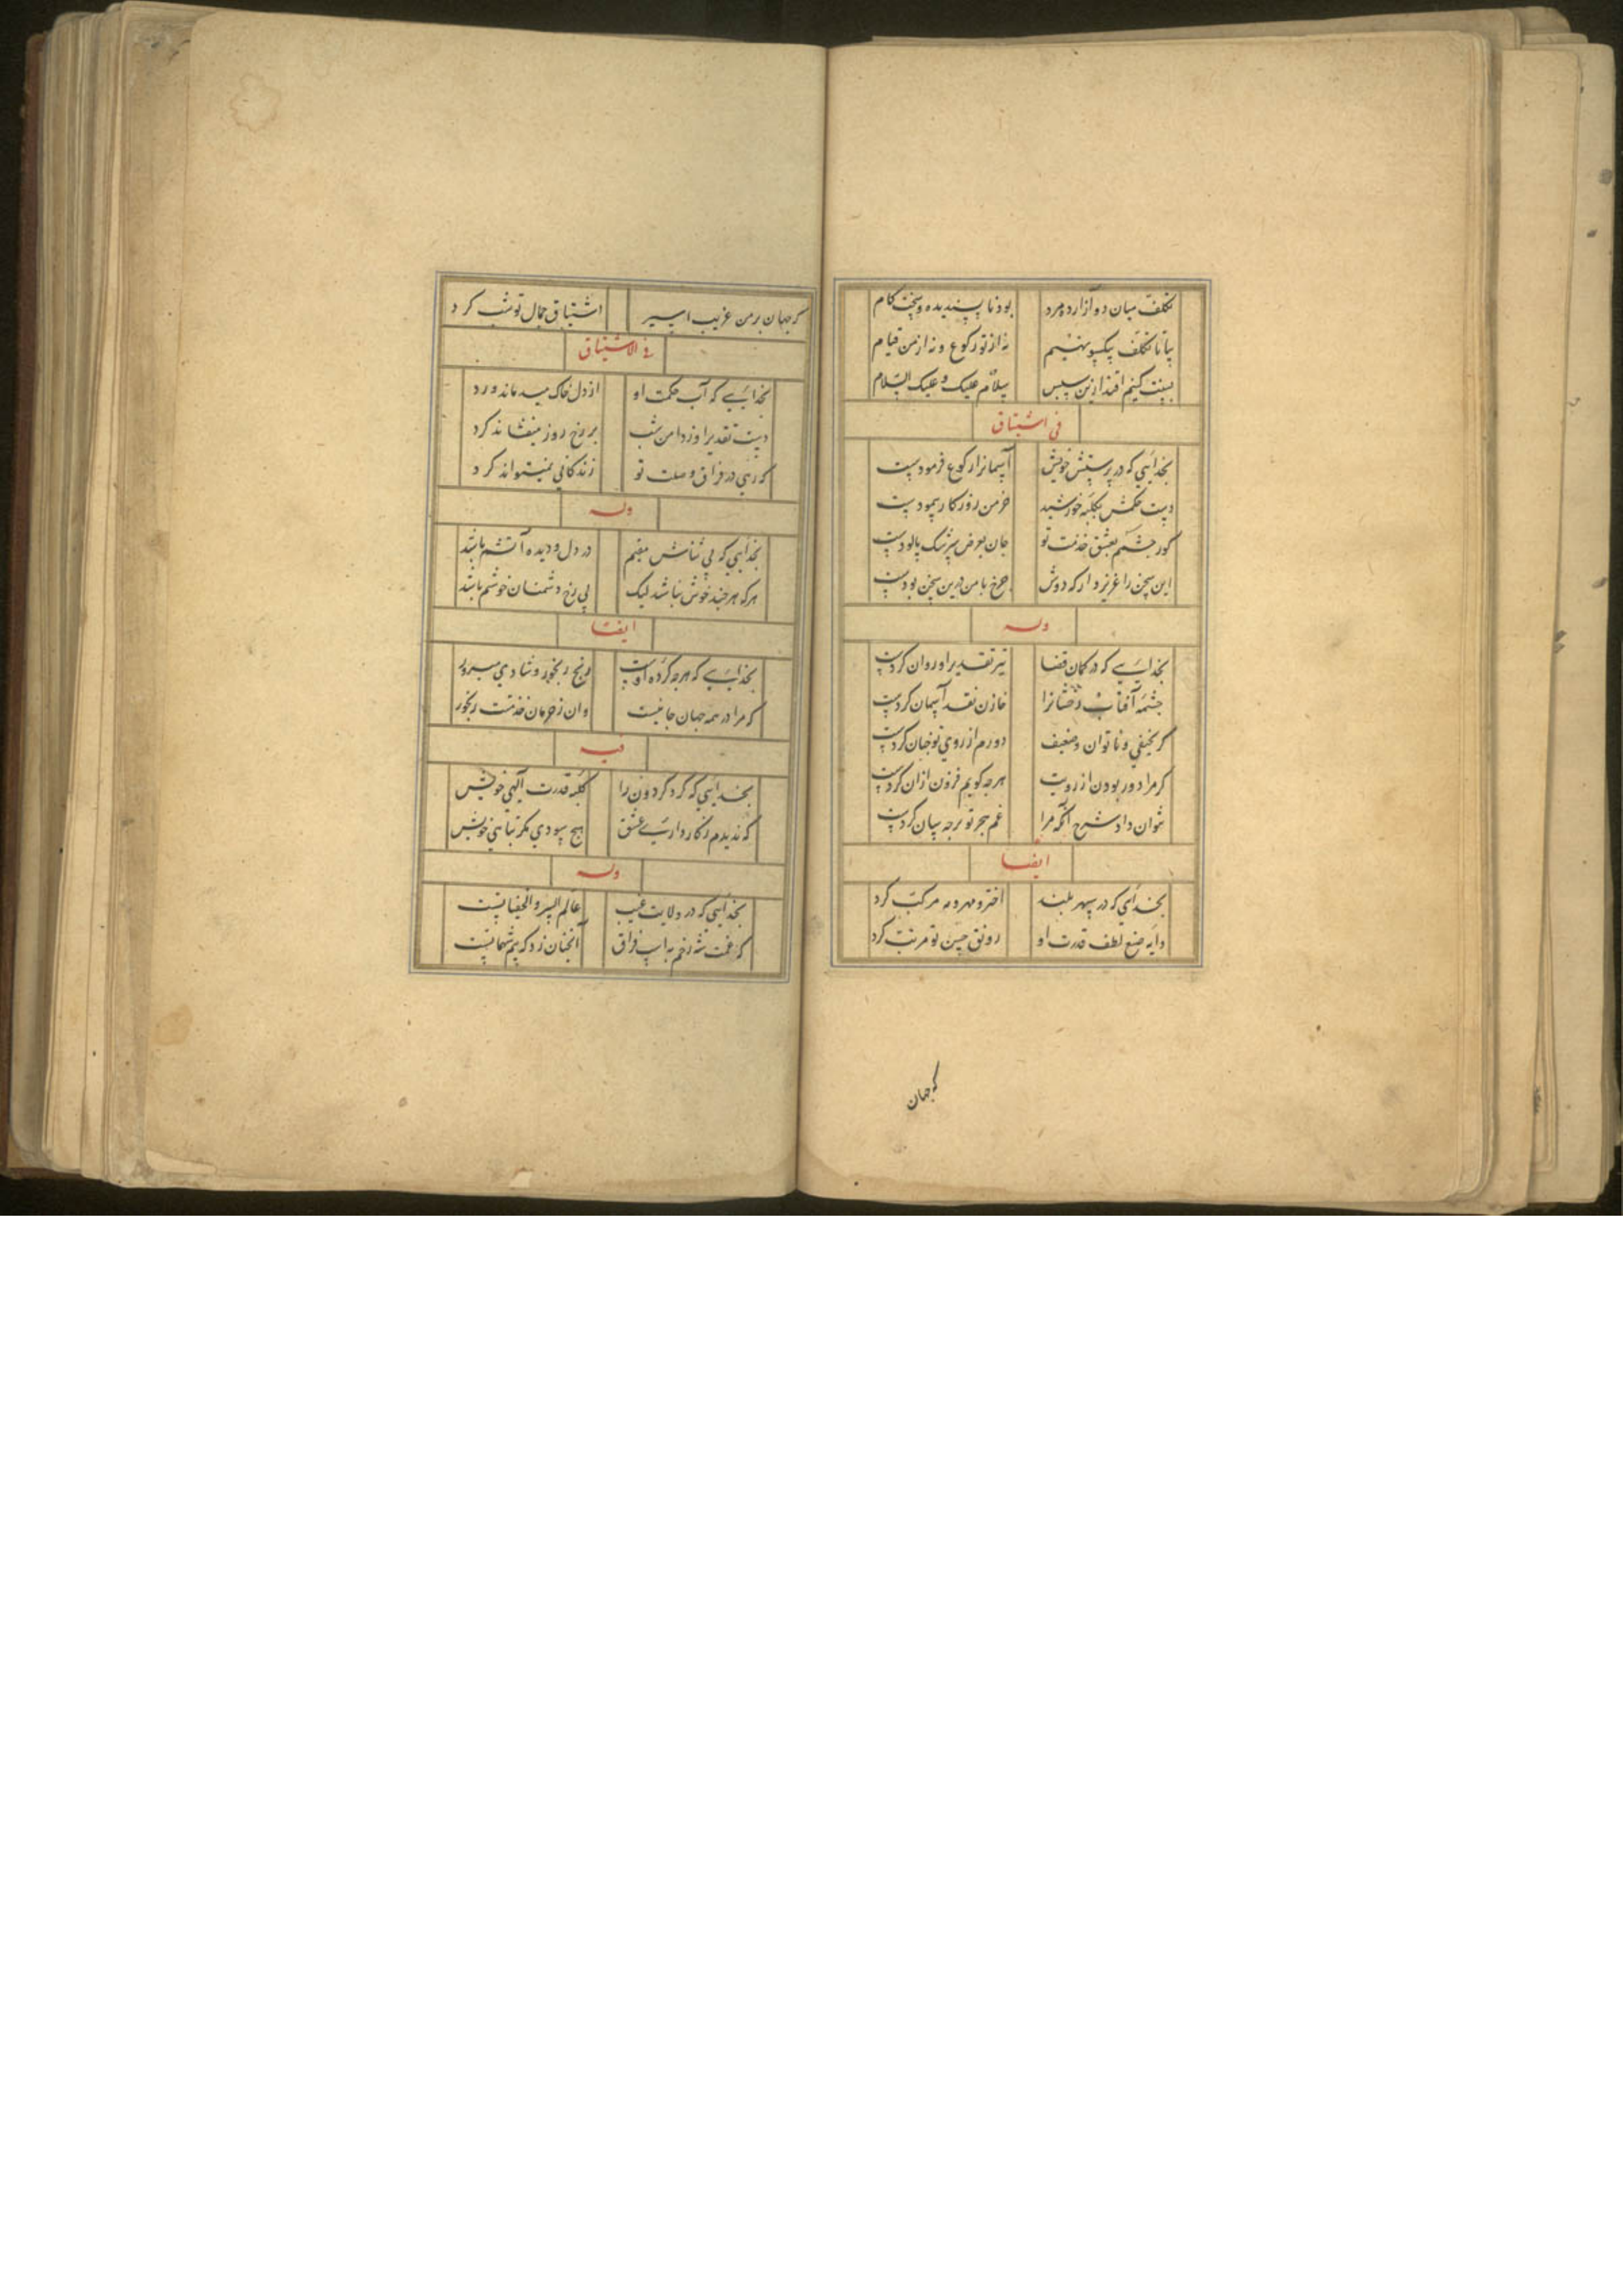 تکلف میان دو آزاده مرد بود ناپسندیده و سخت کام
بیا تا تکلف بیکسو نهیم نه از تو رکوع و نه از من قیام
بسنت کنیم اقتدا زین سپس سلام علیک و علیک السلام
فی اشتیاق
بخدایی که در پرستش خویش آسمانرا رکوع فرمودست
دست حکمش بکیله خورشید خرمن روزکار پیمودست
کور جشمم بعشق خدمت تو جان بعوض سرشک پالودست
این سخن را عزیز دار که دوش چرخ با من درین سخن بودست
وله
بخدایی که در کمان قضا تیر تقدیر او روان کردست
جشمه آفتاب رخشانرا خازن نقد آسمان کردست
کر نحیفی و ناتوان و ضعیف دورم از روی تو جهان کردست
کر مرا دور بودن از رویت هرجه کویم فزون ازان کردست
نتوان داد شرح آنکه مرا غم هجر تو برجه سان کردست
ایضا
بخدایی که در سپهر بلند اختر و مهر و مه مرکب کرد
دایه صنع لطف قدرت او رونق حسن تو مرتب کرد
کجهان
کجهان بر من غریب اسیر اشتیاق جمال تو شب کرد
فی الاشتیاق
بخدایی که آب حکمت او از دل خاک میدماند ورد
دست تقدیر او ز دامن شب بر رخ روز میفشاند کرد
که رهی در فراق وصلت تو زندکانی نمیتواند کرد
وله
بخدایی که بی ثناش مقیم در دل و دیده آتشم باشد
هرکه هرجند خوش نباشد لیک بی رخ دشمنان خوشم باشد
ایضا
بخدایی که هرجه کرده اوست رنج رنجور و شادی مسرور
که مرا در همه جهان جانیست وان ز حرمان خدمتت رنجور
فیه
بخدایی که کرد کردون را کلبه قدرت آلهی خویش
که ندیدم ز کار داری عشق هیچ سودی مکر تباهی خویش
وله
بخدایی که در ولایت غیب عالم السر والخفیاتست
که غمت شه رخم به اسب فراق آنجنان زد که بیم شهماتست